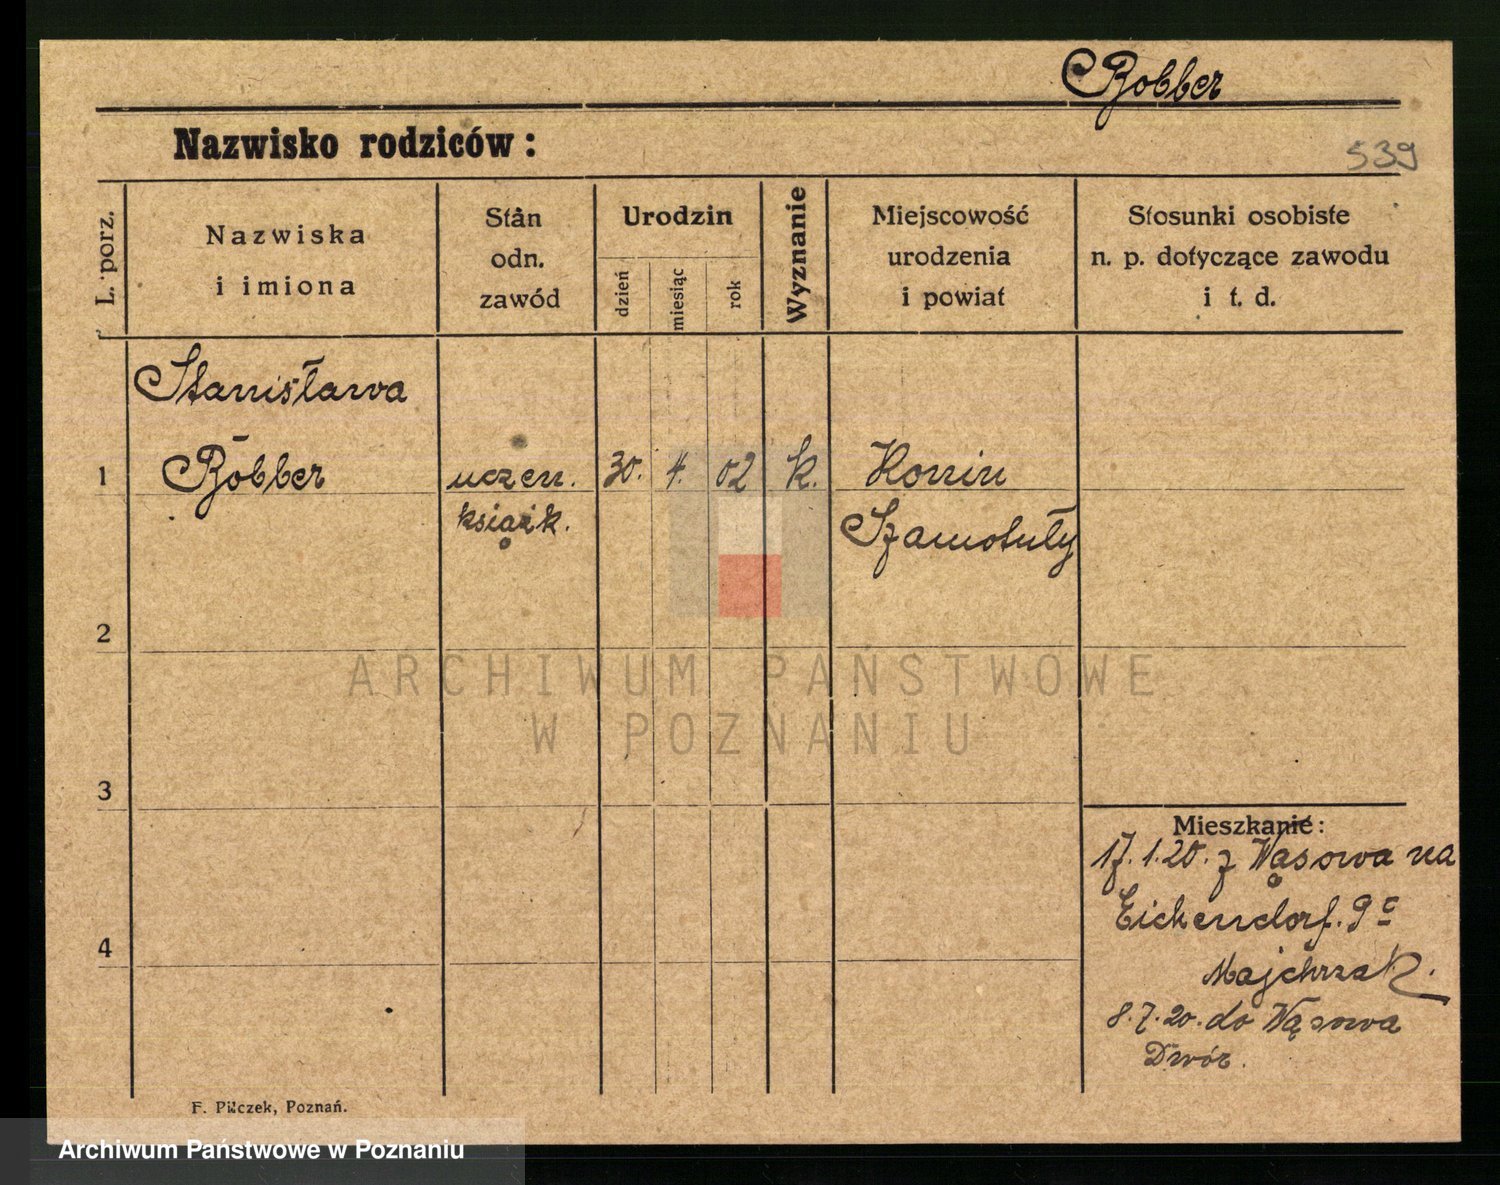 Bobber
Nazwisko rodziców:
539
L. porz.
Nazwiska
i imiona
Stan
odn.
zawód
Urodzin
dzień
miesiąc
rok
Wyznanie
Miejscowość
urodzenia
i powiat
Stosunki osobiste
n. p. dotyczące zawodu
i t. d.
Stanisława
1 Bobber uczen. 30. 4. 02 k. Konin
książk. Szamotuły
2
3
4
Mieszkanie:
17.1.20. z Wąsowa na
Eichendorf. 9c
Majchrzak.
8.7.20. do Wąsowa
Dwór.
F. Pilczek, Poznań.
ARCHIWUM PAŃSTWOWE
W POZNANIU
Archiwum Państwowe w Poznaniu